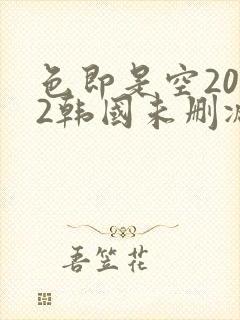 色即是空20
2韩国未删减
吾笠花